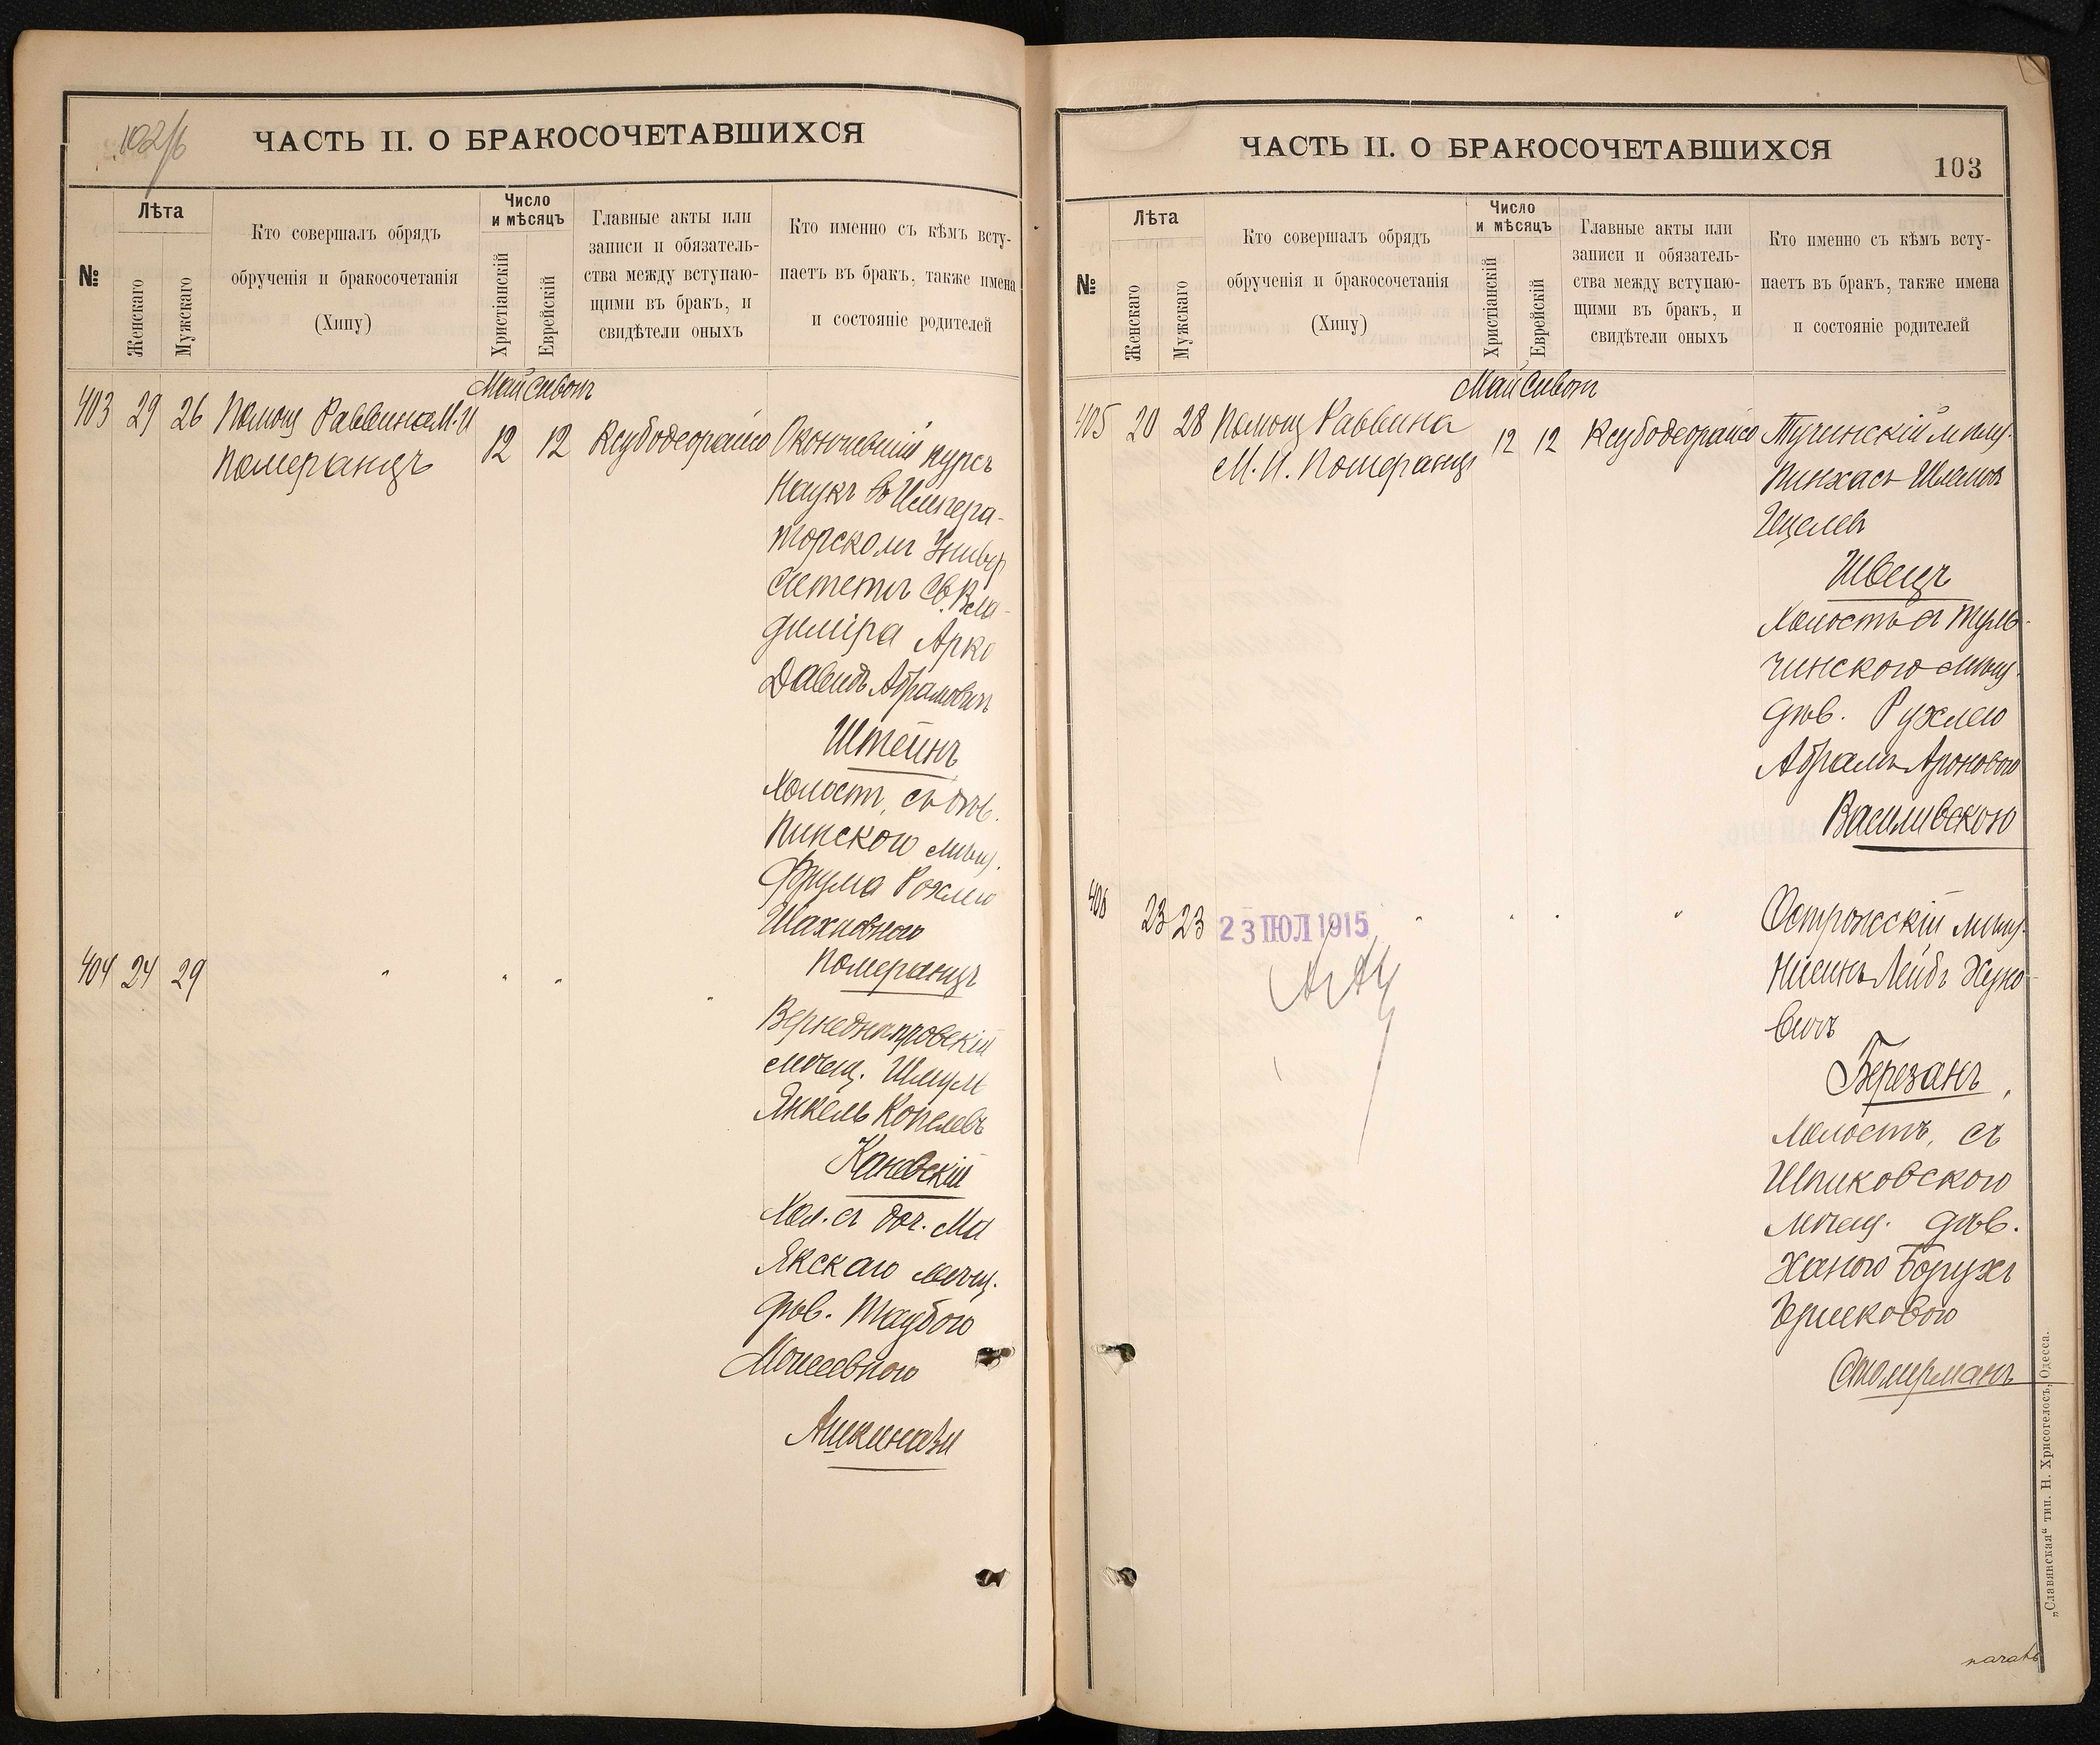 102/б
ЧАСТЬ II. О БРАКОСОЧЕТАВШИХСЯ
№
Лѣта
Женскаго
Мужскаго
Кто совершалъ обрядъ
обрученія и бракосочетанія
(Хипу)
Число
и мѣсяцъ
Христіанскій
Еврейскій
Главные акты или
записи и обязатель-
ства между вступаю-
щими въ бракъ, и
свидѣтели оныхъ
Кто именно съ кѣмъ всту-
паетъ въ бракъ, также имена
и состояніе родителей
Май Сивонъ
403 29 26 Помощ Раввина М. И
Померанцъ
12 12 Ксубодеорайсо
Окончившій курсъ
Наукъ въ Импера-
торскомъ Универ
ситетѣ Св. Вла-
диміра Арко
Давидъ Абрамовичъ
Штейнъ
Холост, съ дѣв.
Пинскою мѣщ.
Фрума Рохлею
Шахновною
Померанцъ
404 24 29 " " " "
Верхеднѣпровскій
мѣщ. Шмул
Янкель Копелевъ
Каневскій
Хол. съ доч. Ма
Якскаго мѣщ.
дѣв. Таубою
Моисеевною
Ашкинази
ЧАСТЬ II. О БРАКОСОЧЕТАВШИХСЯ
103
№
Лѣта
Женскаго
Мужскаго
Кто совершалъ обрядъ
обрученія и бракосочетанія
(Хипу)
Число
и мѣсяцъ
Христіанскій
Еврейскій
Главные акты или
записи и обязатель-
ства между вступаю-
щими въ бракъ, и
свидѣтели оныхъ
Кто именно съ кѣмъ всту-
паетъ въ бракъ, также имена
и состояніе родителей
Май Сивон
405 20 28 Помощ Раввина
М. И. Померанцъ
12 12 Ксубодеорайсо
Тучинскій мѣщ.
Пинхасъ Шламов
Ицелев
Швецъ
Холостъ съ Туль-
чинскою мѣщ.
дѣв. Рухлею
Абрамъ Ароновою
Василивскою
406 23 23 23 ІЮЛ 1915 " " " "
Острожскій мѣщ.
Нисинъ Лейбъ Хуно
вичъ
Березанъ,
Холостъ, съ
Шпиковского
мѣщ. дѣв.
Ханою Борухъ
Гершковою
Стомерманъ
„Славянская“ тип. Н. Хрисогелосъ, Одесса.